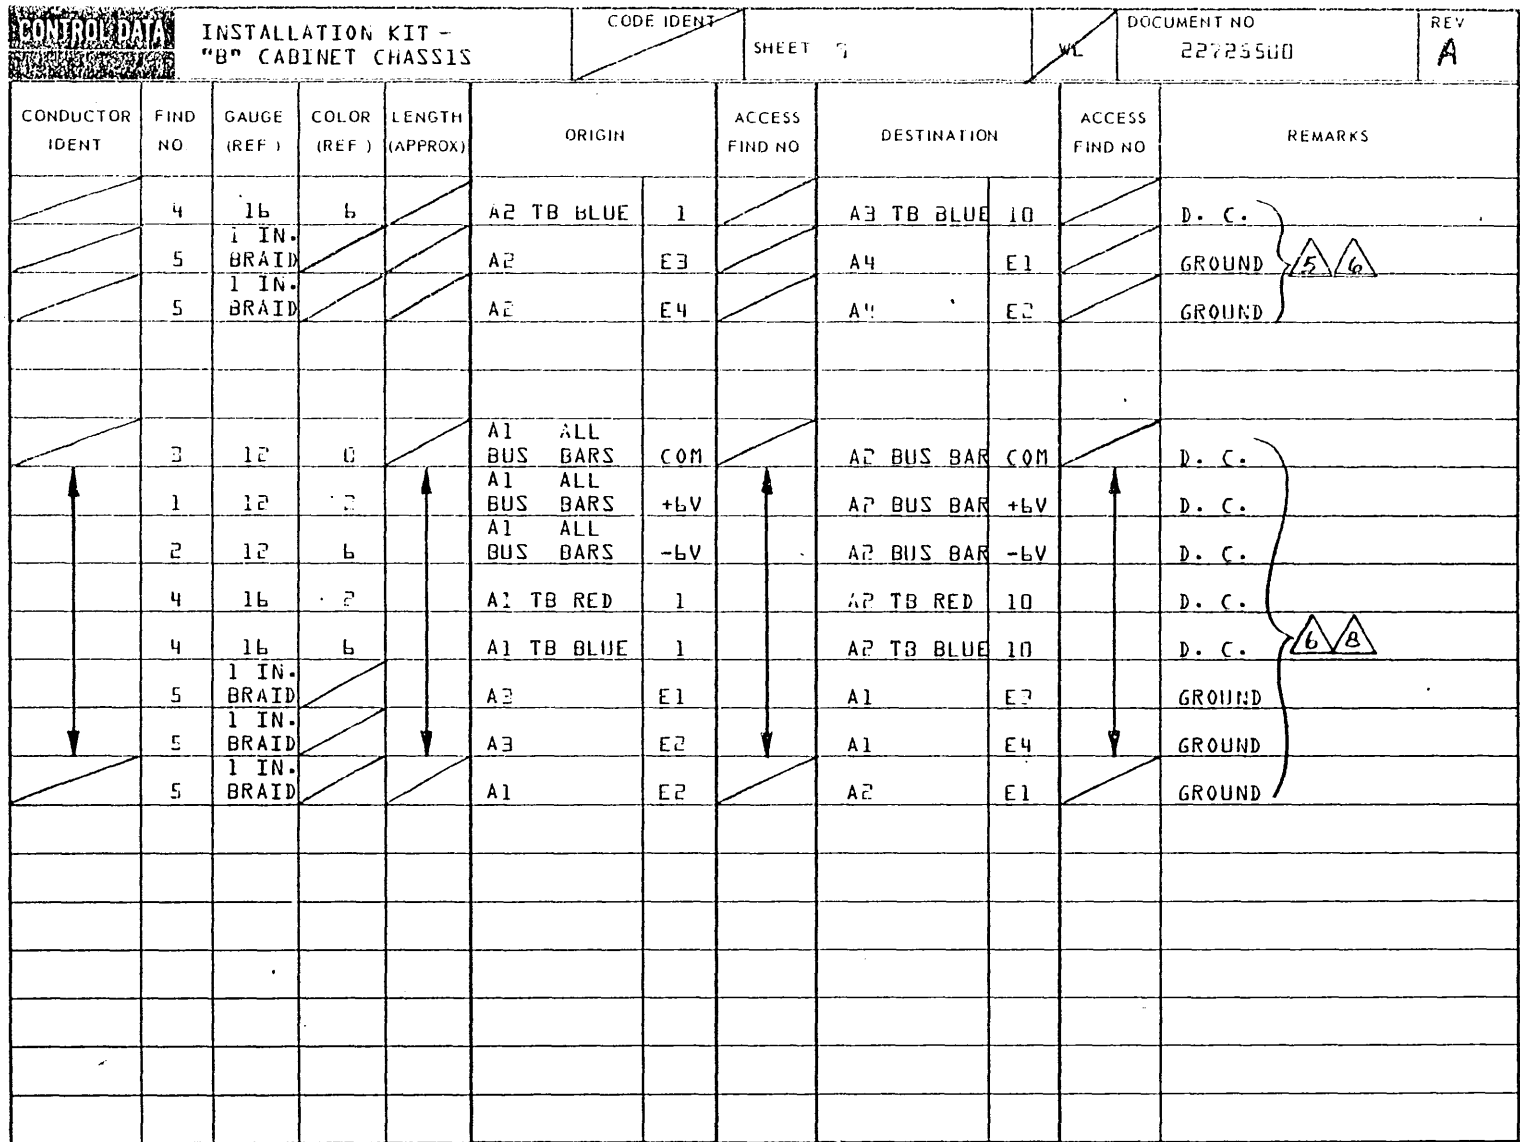 CONTROL DATA
INSTALLATION KIT -
"B" CABINET CHASSIS
CODE IDENT
SHEET 9
WL
DOCUMENT NO
REV
A
CONDUCTOR IDENT FIND NO. GAUGE (REF) COLOR (REF) LENGTH (APPROX) ORIGIN ACCESS FIND NO DESTINATION ACCESS FIND NO REMARKS
4 16 6 A2 TB BLUE 1 A3 TB BLUE 10 D. C.
5 1 IN. BRAID A2 E3 A4 E1 GROUND 5 6
5 1 IN. BRAID A2 E4 A4 E2 GROUND
3 12 0 A1 ALL BUS BARS COM A2 BUS BAR COM D. C.
1 12 2 A1 ALL BUS BARS +6V A2 BUS BAR +6V D. C.
2 12 6 A1 ALL BUS BARS -6V A2 BUS BAR -6V D. C.
4 16 2 A1 TB RED 1 A2 TB RED 10 D. C.
4 16 6 A1 TB BLUE 1 A2 TB BLUE 10 D. C. 6 8
5 1 IN. BRAID A3 E1 A1 E3 GROUND
5 1 IN. BRAID A3 E2 A1 E4 GROUND
5 1 IN. BRAID A1 E2 A2 E1 GROUND